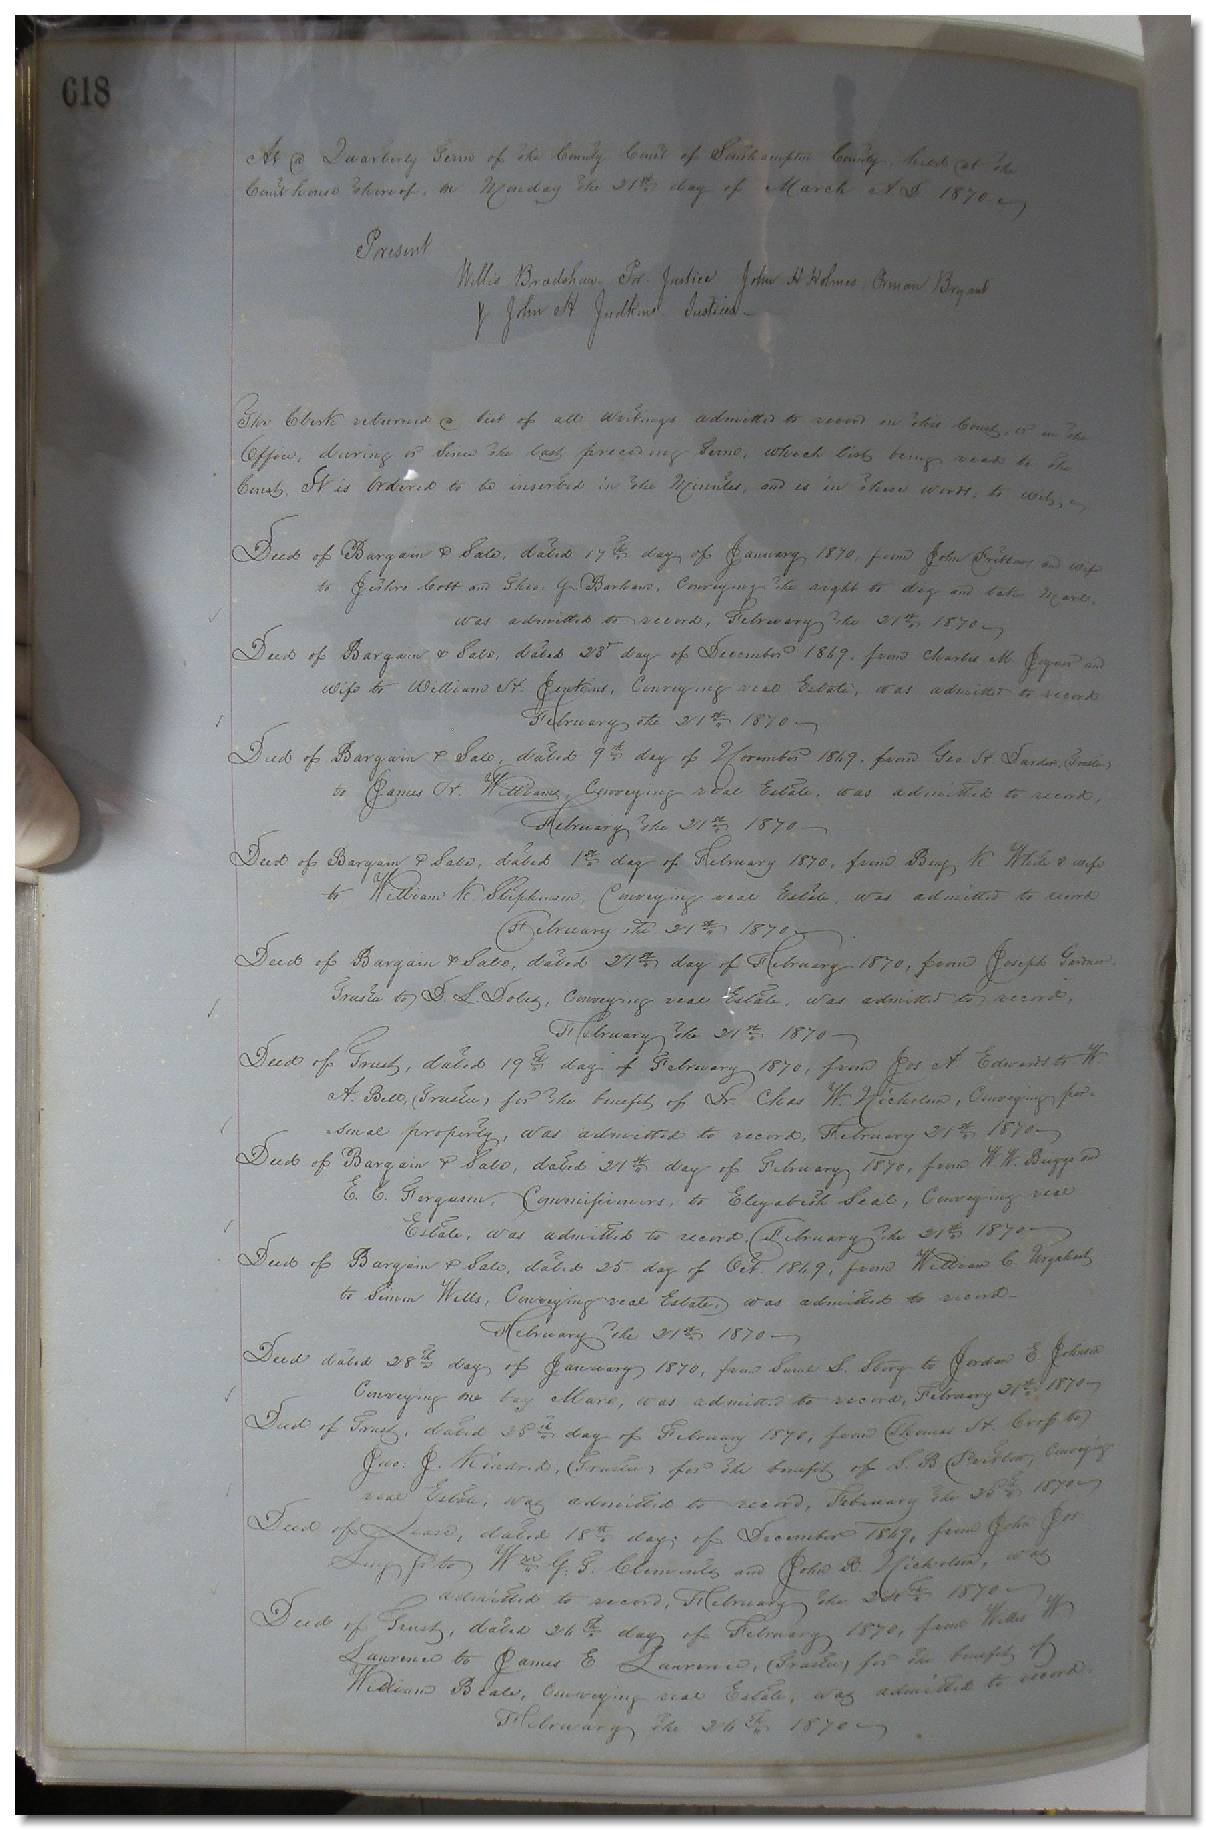 618
At a Quarterly Term of the County Court of Southampton County, held at the
Courthouse thereof, on Monday the 21st day of March A.D. 1870
Present
Willis Bradshaw Pr. Justice John H Holmes, Orman Bryant
& John H Judkins Justices
The Clerk returned a list of all writings admitted to record in this Court, or in the
Office, during or since the last preceding Term, which list being read to the
Court, It is Ordered to be inserted in the Minutes, and is in these words, to wit,
Deed of Bargain & Sale, dated 17th day of January 1870, from John and wife
to and Theo. G. Barham, Conveying the right to dig and take Marl,
was admitted to record, February the 21st 1870
Deed of Bargain & Sale, dated 23d day of December 1869, from Charles M. and
wife to William H. Jenkins, Conveying real Estate, was admitted to record
February the 21st 1870
Deed of Bargain & Sale, dated 9th day of November 1869, from Geo. H. Darden, (Trustee)
to James H. Williams, Conveying real Estate, was admitted to record,
February the 21st 1870
Deed of Bargain & Sale, dated 1st day of February 1870, from Benj. K White & wife
to William K Stephenson, Conveying real Estate, was admitted to record
February the 21st 1870
Deed of Bargain & Sale, dated 21st day of February 1870, from Joseph
Trustee to D. L. Dobey, Conveying real Estate, was admitted to record,
February the 21st 1870
Deed of Trust, dated 19th day of February 1870, from Jos A. Edwards to W.
A. Bell, (Trustee) for the benefit of Dr. Chas W. Nicholson, Conveying per-
sonal property, was admitted to record, February 21st 1870
Deed of Bargain & Sale, dated 21st day of February 1870, from W. W. Briggs and
E. C. Ferguson, Commissioners, to Elizabeth Seal, Conveying real
Estate, was admitted to record, February the 21st 1870
Deed of Bargain & Sale, dated 25 day of Oct. 1869, from William C. Urquhart
to Simon Wells, Conveying real Estate, was admitted to record
February the 21st 1870
Deed dated 28th day of January 1870, from Saml S. Story to Jordan E. Johnson
Conveying one bay Mare, was admitted to record, February 21st 1870
Deed of Trust, dated 25th day of February 1870, from Thomas H. Cross to
Jno. J. Kindred, (Trustee) for the benefit of S. B. Conveying
real Estate, was admitted to record, February the 25th 1870
Deed of Lease, dated 18th day of December 1869, from John Jos
Long jr to Wm G. G. Clements and John B. Nicholson, was
admitted to record, February the 24th 1870
Deed of Trust, dated 26th day of February 1870, from Willis W
Laurence to James E Laurence, (Trustee) for the benefit of
William Beale, Conveying real Estate, was admitted to record
February the 26th 1870